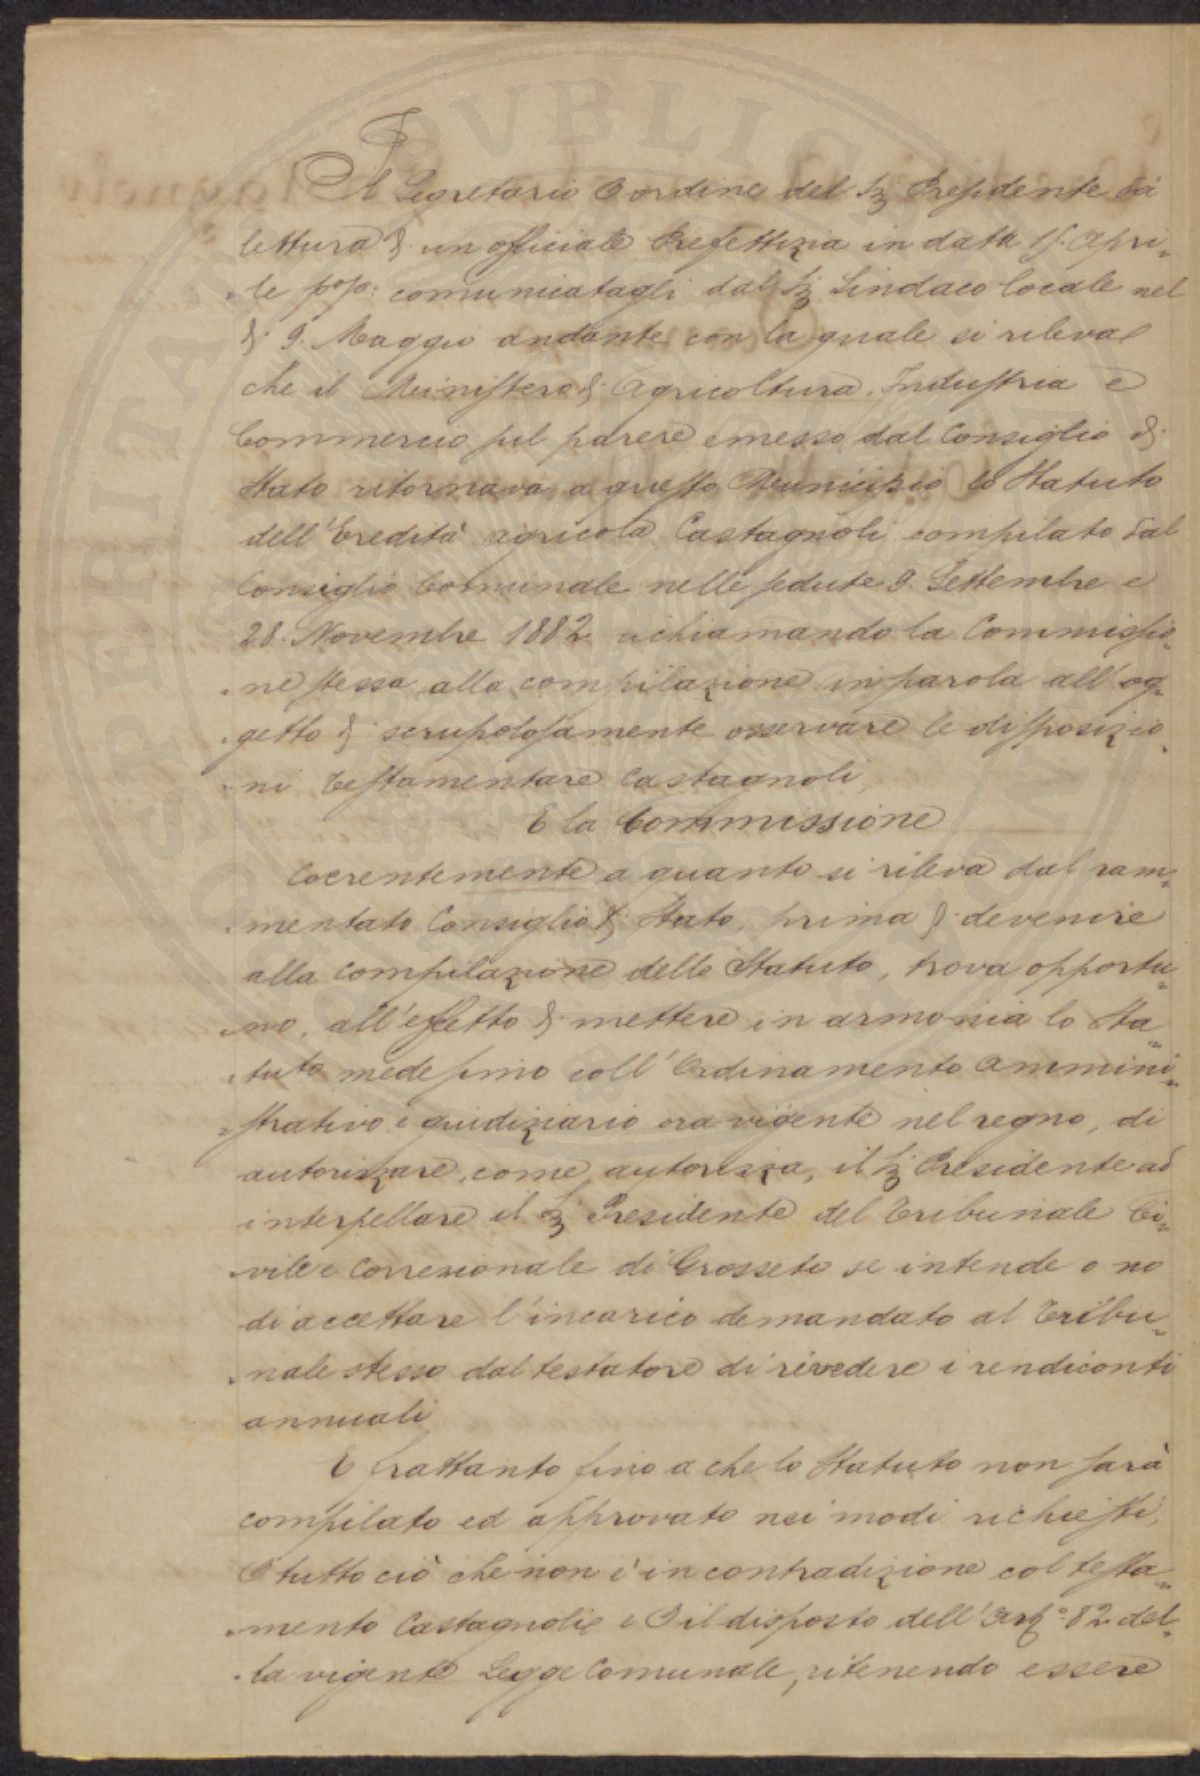 Il Segretario d'ordine del Sig. Presidente dà
lettura di un officiale Prefettizia in data 15. Apri-
-le p°p°: comunicatagli dal Sig. Sindaco locale nel
dì 9. Maggio andante con la quale si rileva
che il Ministero di Agricoltura, Industria e
Commercio sul parere emesso dal Consiglio di
Stato ritornava a questo Municipio lo Statuto
dell'Eredità agricola Castagnoli compilato dal
Consiglio Comunale nelle sedute 9. Settembre e
28. Novembre 1882 richiamando la Commissio-
-ne stessa alla compilazione in parola all'og-
-getto di scrupolosamente osservare le disposizio-
-ni testamentare Castagnoli,
E la Commissione
Coerentemente a quanto si rileva dal ram-
-mentato Consiglio di Stato, prima di devenire
alla compilazione dello Statuto, trova opportu-
-no, all'effetto di mettere in armonia lo Sta-
-tuto medesimo coll'Ordinamento Ammini-
-strativo e guidiziario ora vigente nel regno, di
autorizzare, come autorizza, il Sig. Presidente ad
interpellare il Sig. Presidente del Tribunale Ci-
-vile e Correzionale di Grosseto se intende o no
di accettare l'incarico demandato al Tribu-
-nale stesso dal testatore di rivedere i rendiconti
annuali
E frattanto fino a che lo Statuto non sarà
compilato ed approvato nei modi richiesti,
tutto ciò che non è in contradizione col testa-
-mento Castagnoli e il disposto dell'Art° 82 del-
-la vigente Legge Comunale, ritenendo essere
PVBLICA